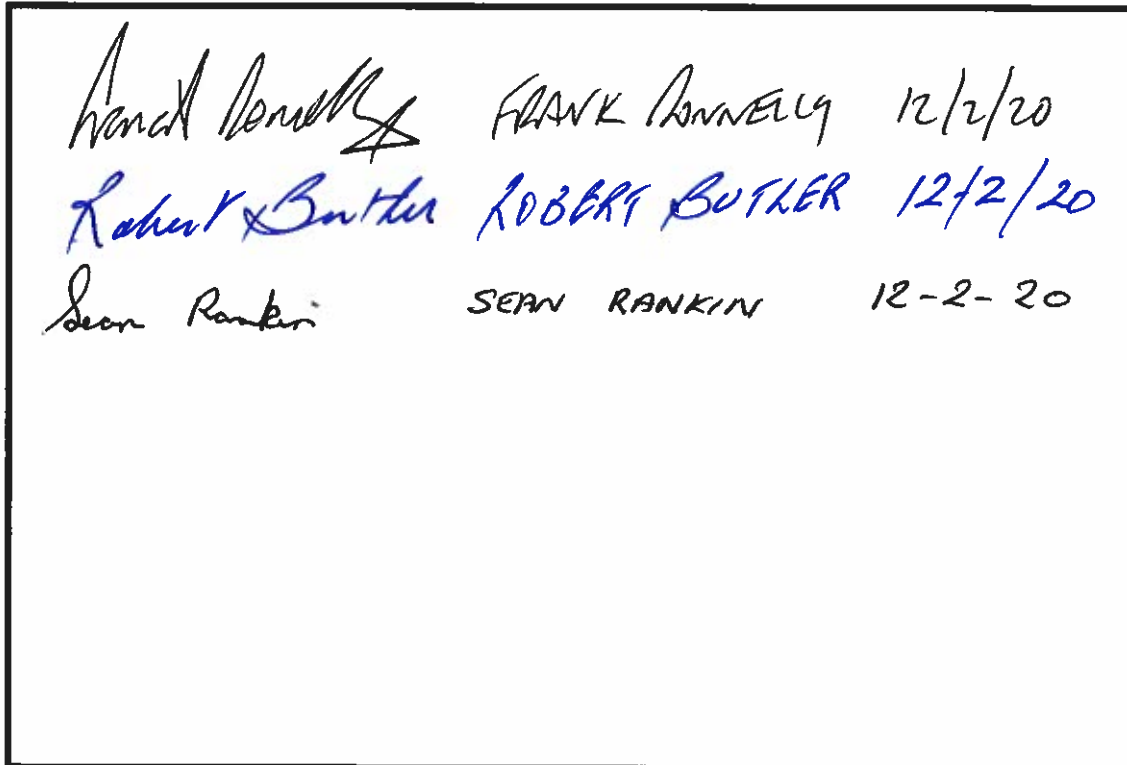 Donnelly FRANK DONNELLY 12/2/20
Robert Butler ROBERT BUTLER 12/2/20
Sean Rankin SEAN RANKIN 12-2-20